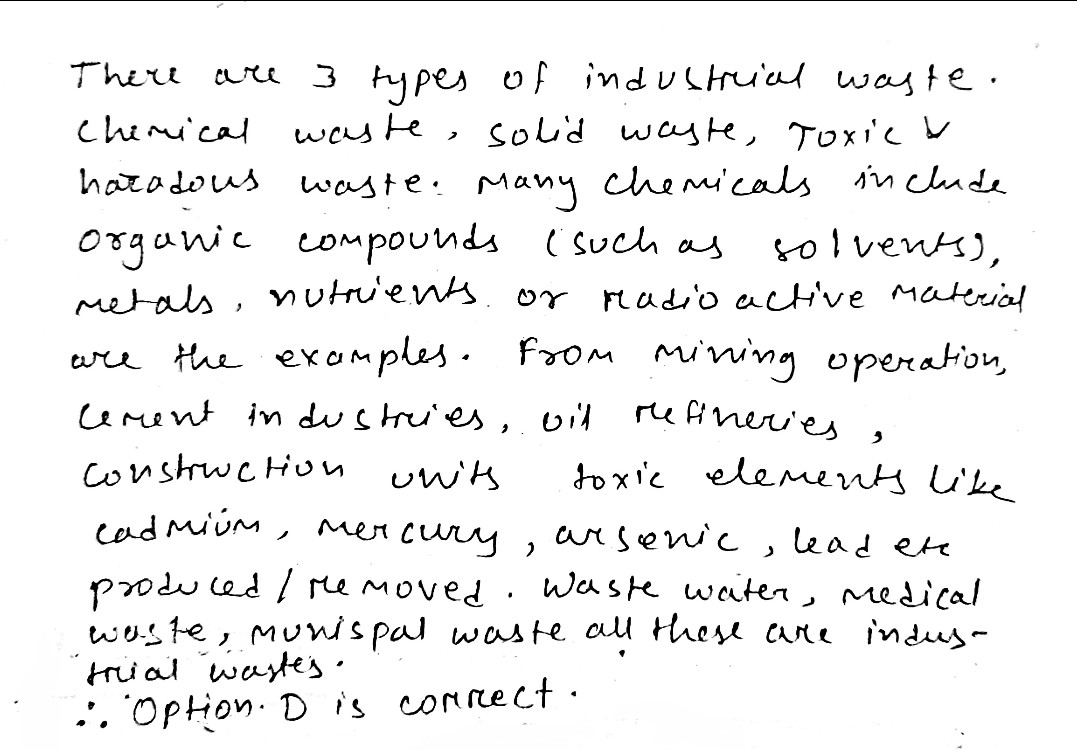 There are 3 types of industrial waste.
Chemical waste, solid waste, Toxic &
hazadous waste. Many chemicals include
organic compounds (such as solvents),
metals, nutrients or radio active material
are the examples. From mining operation,
cement industries, oil refineries,
construction units toxic elements like
cadmium, mercury, arsenic, lead etc
produced/removed. Waste water, medical
waste, munispal waste all these are indus-
trial wastes.
∴ Option. D is correct.